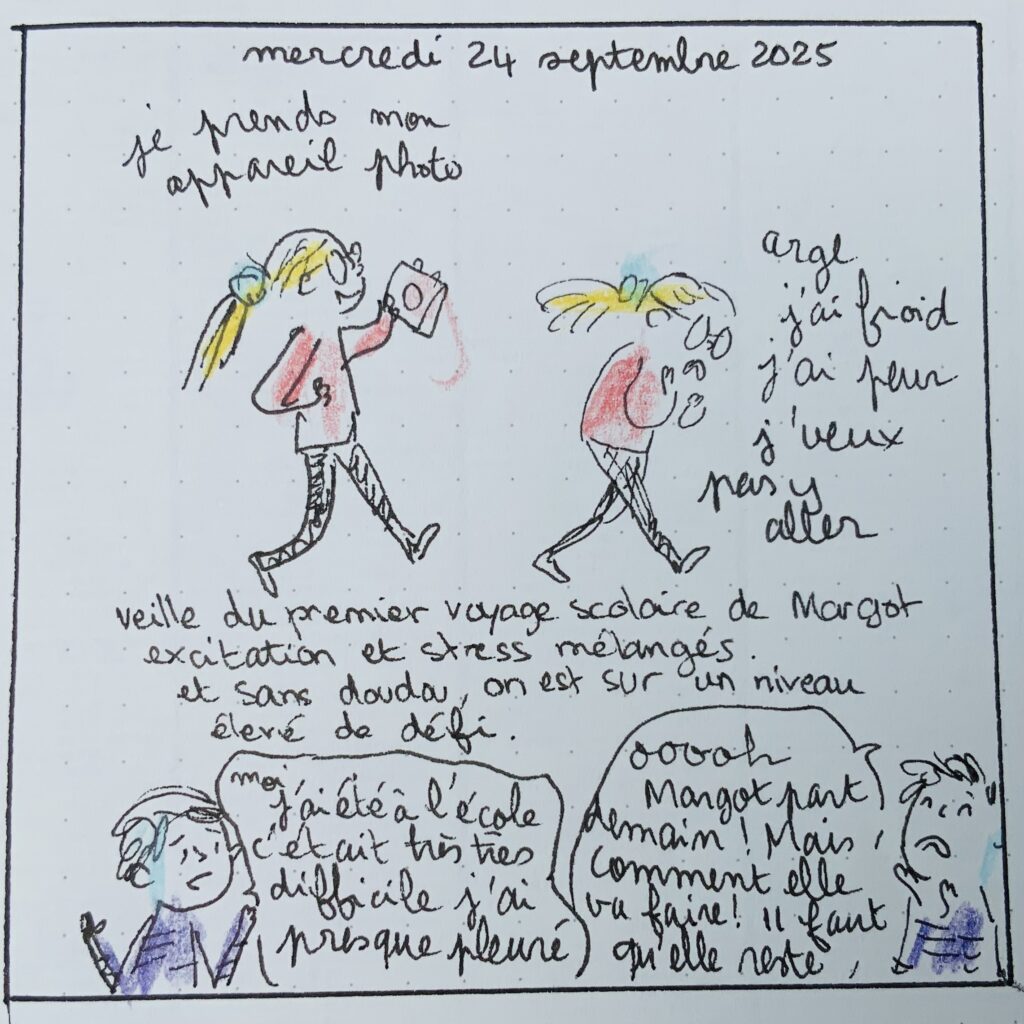 mercredi 24 septembre 2025
je prends mon
appareil photo
argl
j'ai froid
j'ai peur
j'veux
pas y
aller
veille du premier voyage scolaire de Margot
excitation et stress mélangés.
et sans doudou, on est sur un niveau
élevé de défi.
moi
j'ai été à l'école
c'était très très
difficile j'ai
presque pleuré
ooooh
Margot part
demain ! Mais,
comment elle
va faire ! Il faut
qu'elle reste,